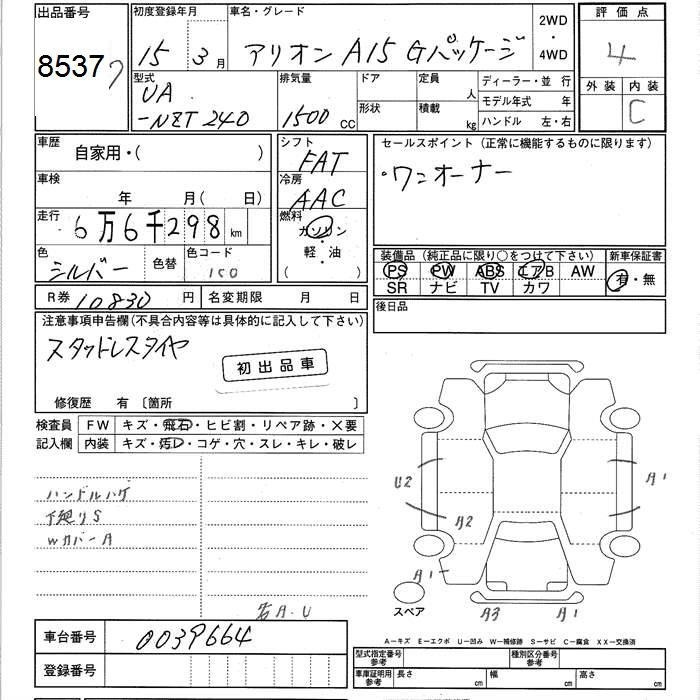 出品番号 初度登録年月 車名・グレード 2WD・4WD 評価点
8537 15年 3月 アリオン A15 Gパッケージ 4
型式 排気量 ドア 定員 人 ディーラー・並行 外装 内装
UA-NZT240 1500cc 形状 積載 kg モデル年式 年 C
ハンドル 左・右
車歴 自家用・( ) シフト FAT セールスポイント(正常に機能するものに限ります)
車検 年 月( 日) 冷房 AAC ・ワンオーナー
走行 6万6千298km 燃料 ガソリン・軽・油 ( )
色 シルバー 色替 色コード 1C0 装備品(純正品に限り○をつけて下さい) 新車保証書
PS PW ABS エアB AW 有・無
SR ナビ TV カワ
R券 10830円 名変期限 月 日 後日品
注意事項申告欄(不具合内容等は具体的に記入して下さい)
スタッドレスタイヤ
初出品車
修復歴 有 〔箇所 〕
検査員 FW キズ・飛石・ヒビ割・リペア跡・×要
記入欄 内装 キズ・汚レ・コゲ・穴・スレ・キレ・破レ
ハンドルハゲ
下廻りS
WカバーA
右A.U
U2 A2 A2 A1
A1 A3 A1
スペア
A—キズ E—エクボ U—凹み W—補修跡 S—サビ C—腐食 XX—交換済
車台番号 0039664 型式指定番号 参考 種別区分番号 参考
登録番号 車庫証明用 参考 長さ cm 幅 cm 高さ cm